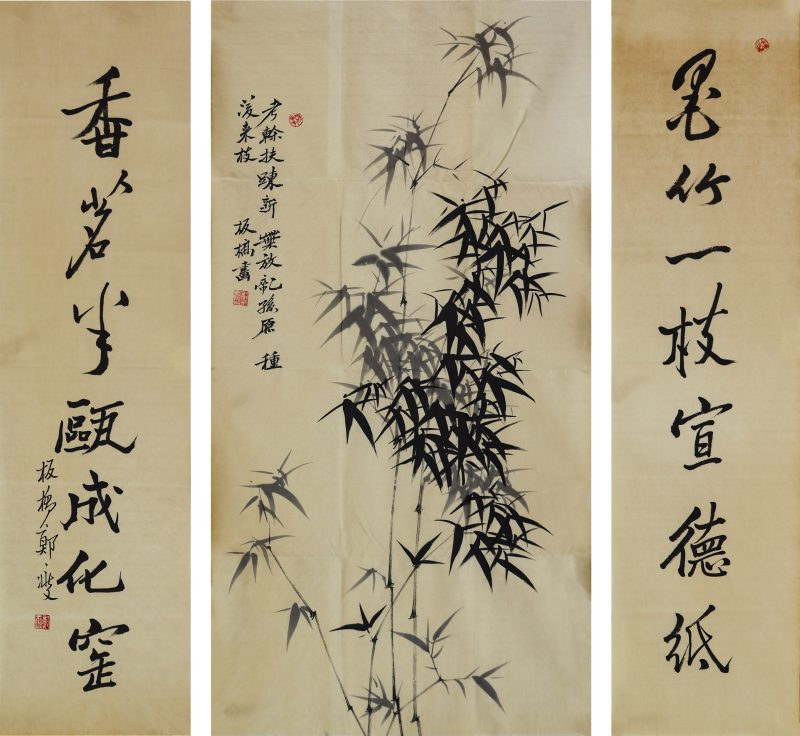 墨竹一枝宣德紙
老幹扶踈新葉放兒孫原種
後来枝 板橋畫
香茗半甌成化窑
板橋鄭燮